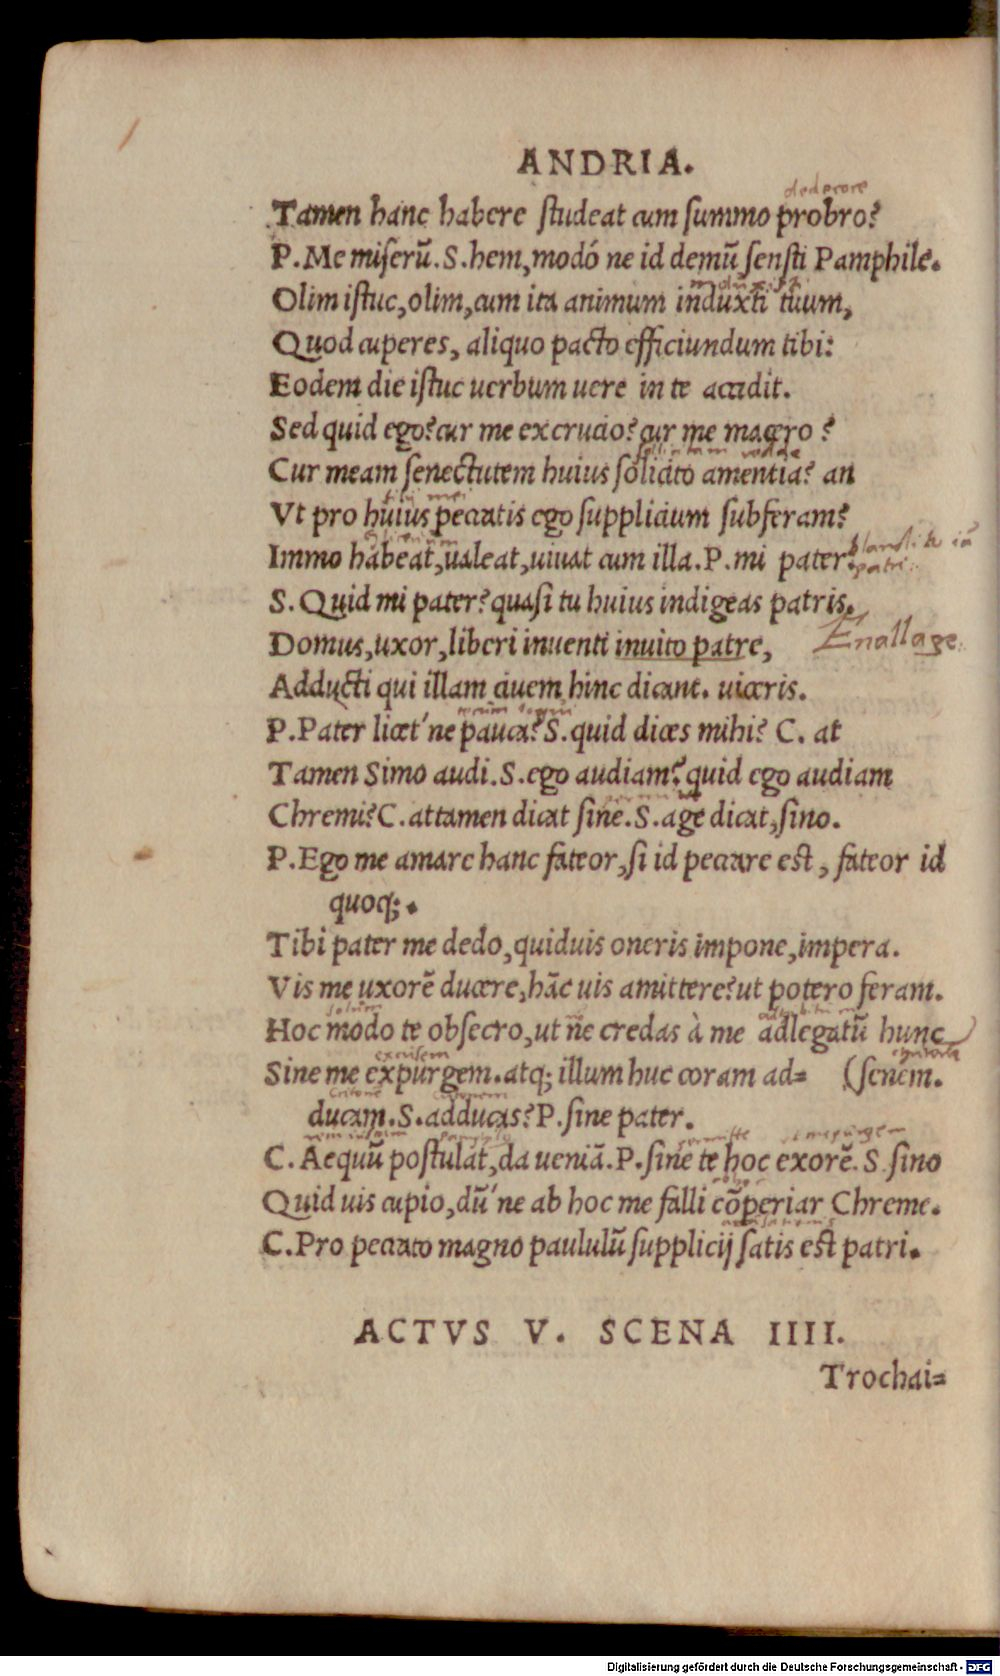 ANDRIA.
dedecore
Tamen hanc habere ſtudeat cum ſummo probro?
P. Me miſerũ. S. hem, modó ne id demũ ſenſti Pamphile.
Olim iſtuc, olim, cum ita animum induxti tuum,
Quod cuperes, aliquo pacto efficiundum tibi:
Eodem die iſtuc uerbum uere in te accidit.
Sed quid ego? cur me excrucio? cur me macero?
Cur meam ſenectutem huius ſolicito amentia? an
Vt pro huius peccatis ego ſupplicium ſubferam?
Immo habeat, ualeat, uiuat cum illa. P. mi pater.
S. Quid mi pater? quaſi tu huius indigeas patris.
Domus, uxor, liberi inuenti inuito patre,
Enallage.
Adducti qui illam ciuem hinc dicant. uiceris.
P. Pater licet'ne pauca? S. quid dices mihi? C. at
Tamen Simo audi. S. ego audiam? quid ego audiam
Chremi? C. attamen dicat ſine. S. age dicat, ſino.
P. Ego me amare hanc fateor, ſi id peccare eſt, fateor id
quoq;.
Tibi pater me dedo, quiduis oneris impone, impera.
Vis me uxorẽ ducere, hãc uis amittere? ut potero feram.
Hoc modo te obſecro, ut ne credas à me adlegatũ hunc
excusem
Sine me expurgem. atq; illum huc coram ad= (ſenem.
Critonē
ducam. S. adducas? P. ſine pater.
C. Aequũ poſtulat, da ueniã. P. ſine te hoc exorẽ. S. ſino
Quid uis cupio, dũ'ne ab hoc me falli cõperiar Chreme.
C. Pro peccato magno paululũ ſupplicij ſatis eſt patri.
ACTVS V. SCENA IIII.
Trochai=
Digitalisierung gefördert durch die Deutsche Forschungsgemeinschaft - DFG